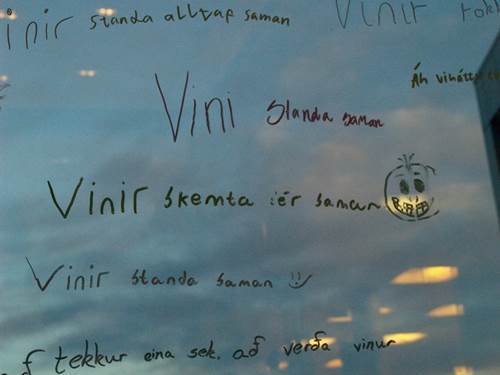 inir standa alltaf saman
Vinir
Án vinátt
Vini standa saman
Vinir skemta sér saman
Vinir standa saman
tekkur eina sek. að verða vinur